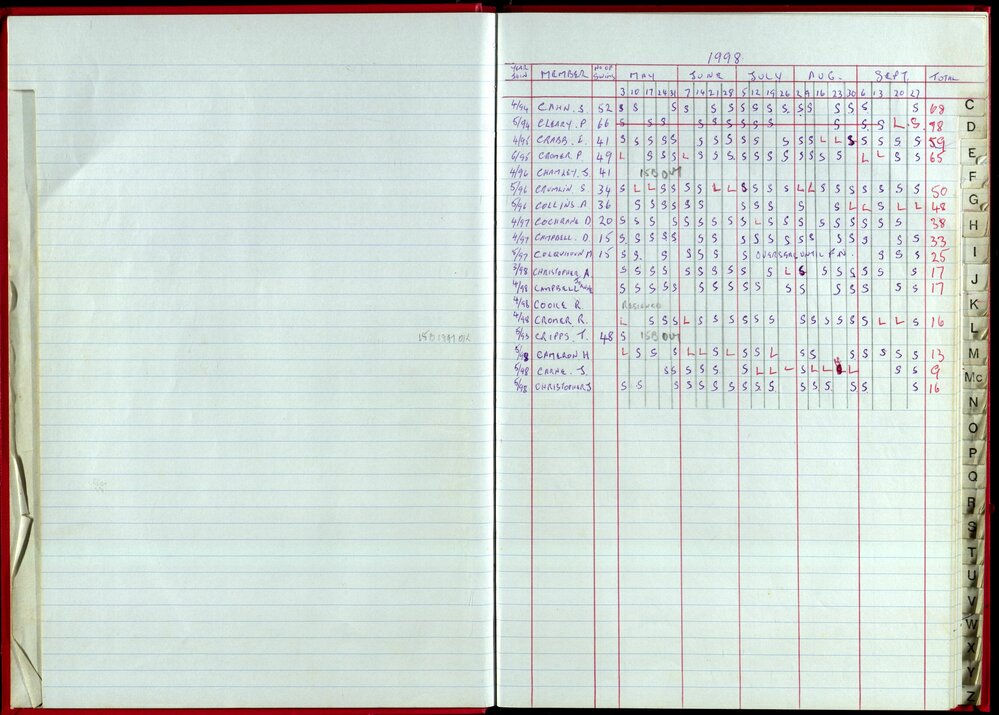 1998
YEAR JOIN MEMBER NO OF SWIMS MAY JUNE JULY AUG. SEPT. TOTAL
3 10 17 24 31 7 14 21 28 5 12 19 26 2 9 16 23 30 6 13 20 27
4/94 CAHN. S. 52 S S S S S S S S S S S S S S S S S 68
5/94 CLEARY. P. 66 S S S S S S S S S S S S S L S 98
4/95 CRABB. E. 41 S S S S S S S S S S S S S S L L S S S S S S 59
6/95 CROMER. P. 49 L S S S L S S S S S S S S S S S S L L S S 65
4/96 CHAMLEY. S. 41 ISB OUT
5/96 CRUMLIN S. 34 S L L S S S L L S S S S L L S S S S S S S S 50
5/96 COLLINS. A 36 S S S S S S S S S S S L L S L L 48
4/97 COCHRANE D 20 S S S S S S S S S L S S S S S S S S S S 38
4/97 CAMPBELL. D. 15 S S S S S S S S S S S S S S S S S S S 33
5/97 COLQUHOUN M 15 S S S S S S S OVERSEAS UNTIL F.N. S S S 25
3/98 CHRISTOPHER A. S S S S S S S S S S L S S S S S S S S 17
4/98 CAMPBELL S S S S S S S S S S S S S S S S 17
4/98 COOKE R. RESIGNED
4/98 CROMER R. L S S S L S S S S S S S S S S S S S L L S 16
5/93 CRIPPS. T. 48 S ISB OUT
5/98 CAMERON. H L S S S L L S L S S L S S S S S S S 13
5/98 CARNE. S. S S S S S S S L L S L L L L S S 9
5/98 CHRISTOPHER S S S S S S S S S S S S S S S S S 16
C
D
E
F
G
H
I
J
K
L
M
Mc
N
O
P
Q
R
S
T
U
V
W
X
Y
Z